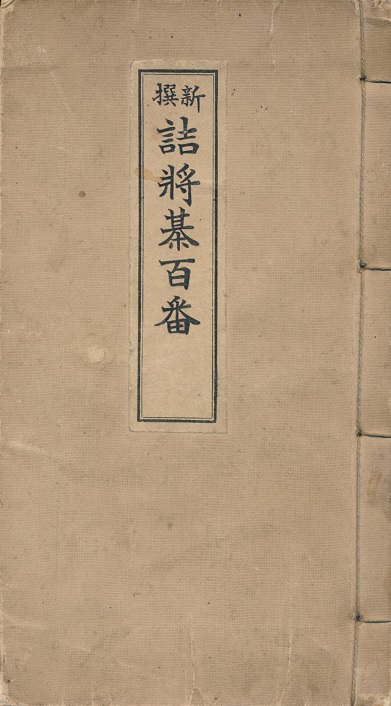 新撰
詰將棊百番